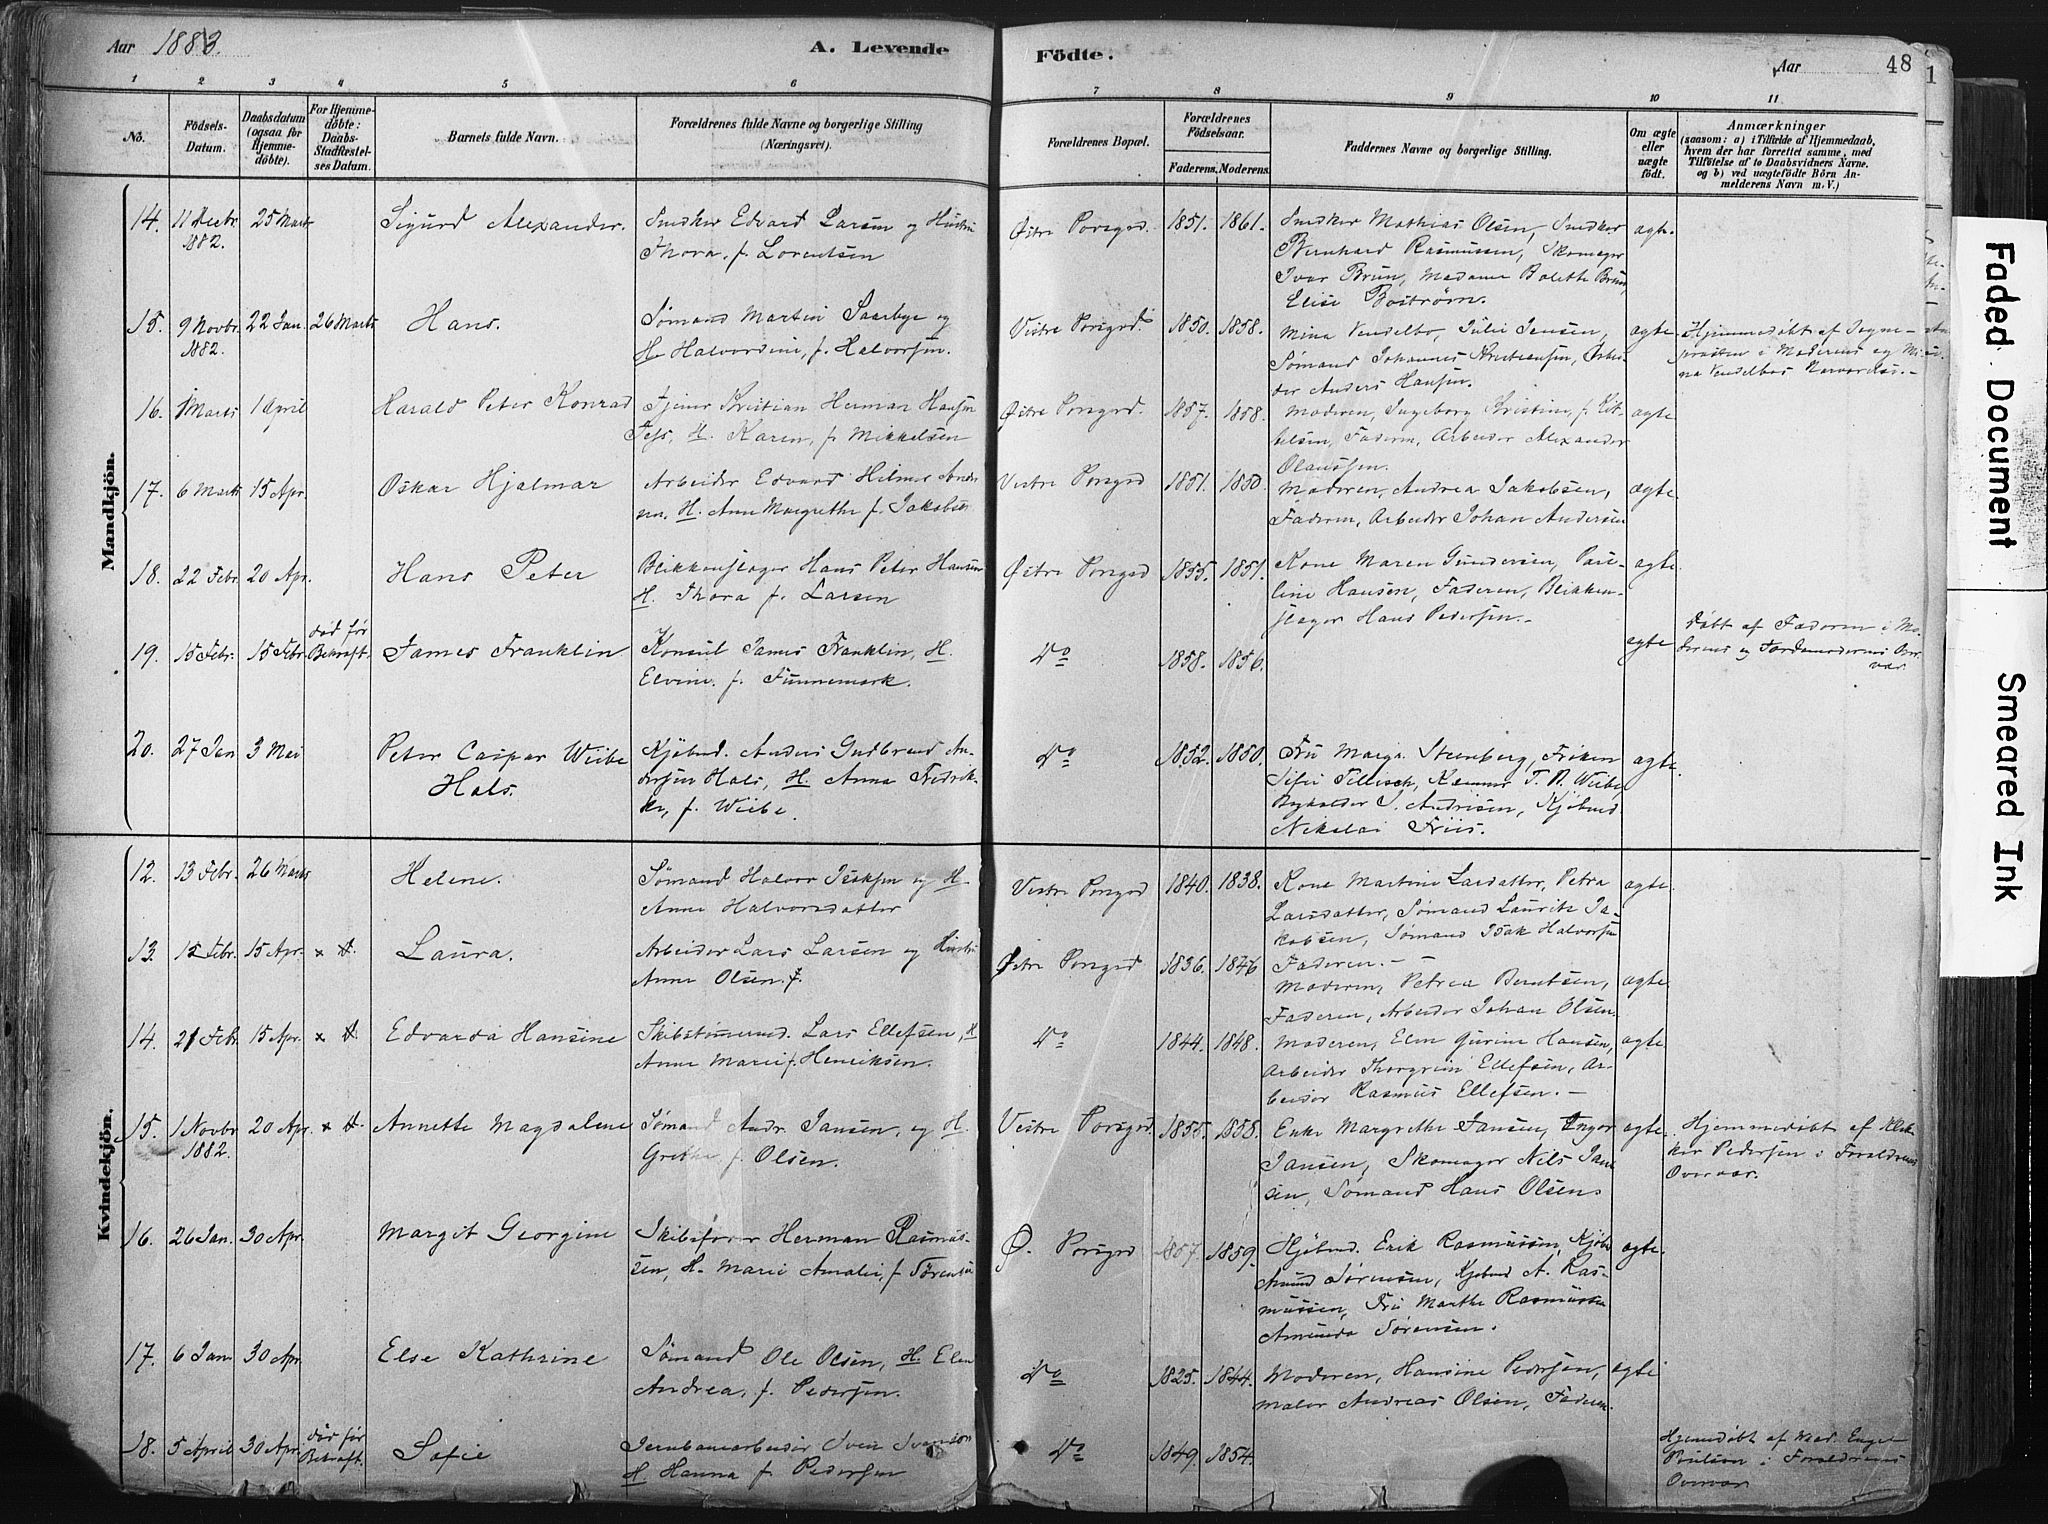 Aar 1883.
A. Levende
Födte.
Aar
48
1
1 2 3 4 5 6
7 8 9 10 11
No.
Födsels-
Datum.
Daabsdatum
(ogsaa for
Hjemme-
döbte).
For Hjemme-
döbte:
Daabs-
Stadfæstel-
ses Datum.
Barnets fulde Navn.
Forældrenes fulde Navne og borgerlige Stilling
(Næringsvei).
Forældrenes Bopæl.
Forældrenes
Födselsaar.
Faderens. Moderens.
Faddernes Navne og borgerlige Stilling.
Om ægte
eller
uægte
födt.
Anmærkninger
(saasom: a) i Tilfælde af Hjemmedaab,
hvem der har forrettet samme, med
Tilföielse af to Daabsvidners Navne.
og b) ved uægtefödte Börn An-
melderens Navn m. V.)
Mandkjön.
14. 11 Decbr 1882. 25 Marts Sigurd Alexander. Snedker Edvard Larsen og Hustru
Thora, f. Lorentsen
Østre Porsgrd. 1851. 1861. Snedker Mathias Olsen, Snedker
Bernhard Rasmussen, Skomager
Ivar Brun, Madame Bolette Brun,
Elise Boström.
ægte.
15. 9 Novbr. 1882. 22 Jan. 26 Marts Hans. Sømand Martin Saarbye og
H. Halvordine, f. Halvorsen.
Vestre Porsgrd. 1850. 1858. Mina Vendelbo, Julie Jensen,
Sømand Johannes Kristiansen, Arbei-
der Anders Hansen.
ægte Hjemmedøbt af Sogne-
præsten i Moderens og Mi-
na Vendelbos Nærværelse.
16. 1 Marts 1 April Harald Peter Konrad Fyrver Kristian Herman Hansen
H. Karen, f. Mikkelsen
Østre Porsgrd. 1857. 1858. Moderen, Ingeborg Kristine, f. Kit-
telsen, Faderen, Arbeider Alexander
Olaussen.
ægte
17. 6 Marts 15 Apr. Oskar Hjalmar Arbeider Edvard Hilmer
H. Anne Margrethe f. Jakobsen
Vestre Porsgrd 1851. 1850. Moderen, Andrea Jakobsen,
Faderen, Arbeider Johan Andersen
ægte
18. 22 Febr. 20 Apr. Hans Peter Blikkenslager Hans Peter Hansen
H. Thora f. Larsen
Østre Porsgrd 1855. 1851. Kone Maren Gundersen, Pau-
line Hansen, Faderen, Blikken-
slager Hans Pedersen.
ægte
19. 15 Febr. 15 Febr. død før
Bekræft. James Franklin Konsul James Franklin, H.
Elvine, f. Funnemark.
Do 1858. 1856. ægte Døbt af Faderen i Mo-
derens og Jordemoderens Over-
vær.
20. 27 Jan 3 Mai Peter Caspar Wiibe
Hals. Kjøbmd. Anders Gudbrand An-
dersen Hals, H. Anna Fredrik-
ke, f. Wiibe.
Do 1852. 1850. Fru Marga. Steenberg, Frøken
Sofie Tellisch, T. A. Wiibe,
J. Andrisen, Kjøbmd
Nikolai Friis.
ægte.
Kvindekjön.
12. 13 Febr. 26 Marts Helene. Sømand Halvor Isaksen og H.
Anne Halvorsdatter
Vestre Porsgrd 1840. 1838. Kone Martine Larsdatter, Petra
Larsdatter, Sømand Lauritz Ja-
kobsen, Sømand Isak Halvorsen
Faderen.
ægte.
13. 15 Febr. 15 Apr. Laura. Arbeider Lars Larsen og Hustru
Anne Olsen f.
Østre Porsgrd 1836. 1846 Moderen, Petrea Berntsen,
Faderen, Arbeider Johan Olsen.
ægte
14. 21 Febr. 15 Apr. Edvarda Hansine Skibstømmermd. Lars Ellefsen, H
Anne Marie f. Henriksen.
Do 1844. 1848. Moderen, Elen Gurine Hansen,
Arbeider Thorgrim Ellefsen, Ar-
beider Rasmus Ellefsen.
ægte
15. 1 Novbr 1882. 20 Apr. Annette Magdalene Sømand Andr. Jansen, og H.
Grethe, f. Olsen.
Vestre Porsgrd 1855. 1858. Enke Margrethe Jansen, Inger
Jansen, Skomager Nils Jan-
sen, Sømand Hans Olsen.
ægte. Hjemmedøbt af Klok-
ker Pedersen i Forældrenes
Overvær.
16. 26 Jan. 30 Apr. Margit Georgine Skibsfører Herman Rasmus-
sen, H. Marie Amalie, f. Sørensen
Ø. Porsgrd 1857. 1859. Kjøbmd. Erik Rasmussen, Kjøb
Amund Sørensen, Kjøbmd A. Ras-
mussen, Fru Marthe Rasmussen
Amunda Sørensen.
ægte.
17. 6 Jan 30 Apr. Else Kathrine Sømand Ole Olsen, H. Elen
Andrea, f. Pedersen.
Do 1825. 1844. Moderen, Hansine Pedersen,
Maler Andreas Olsen, Faderen.
ægte
18. 5 April 30 Apr. død før
Bekræft. Sofie Jernbanearbeider Sven Svenson
H. Hanna f. Pedersen
Do 1849. 1854. Hjemmedøbt af Mad. Engel
Poulsen i Forældrenes
Overvær
Faded Document
Smeared Ink